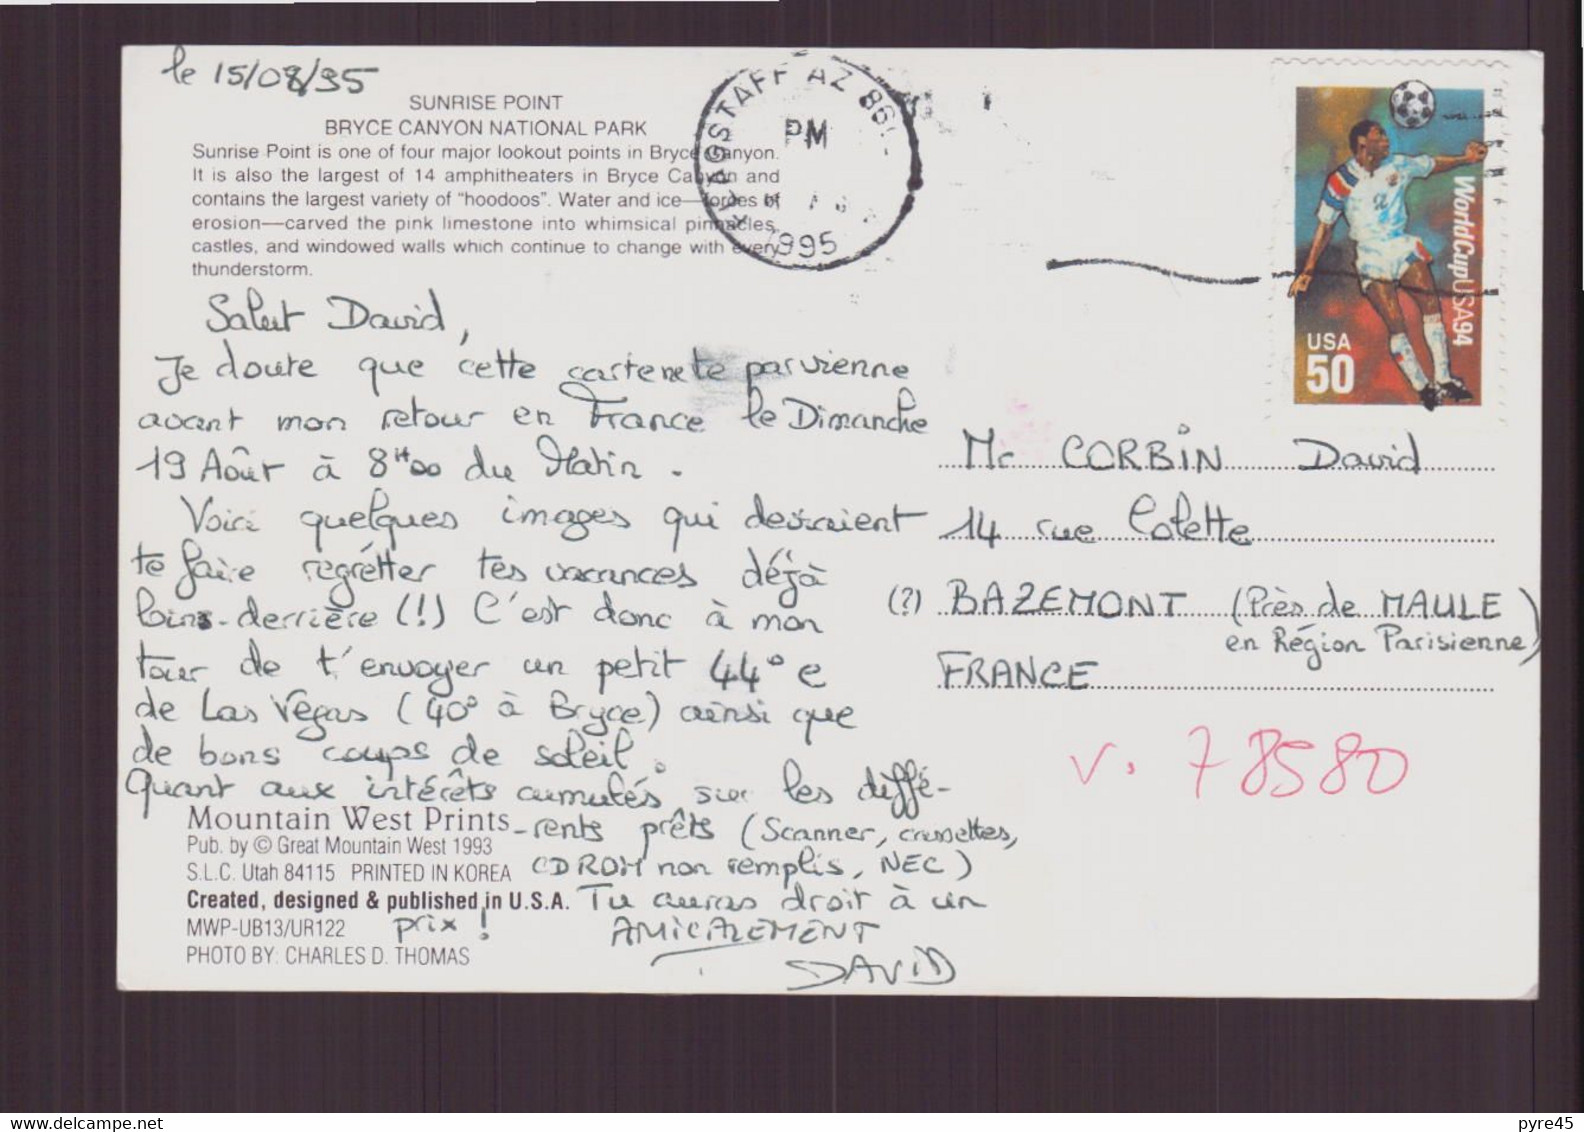 le 15/08/95
SUNRISE POINT
BRYCE CANYON NATIONAL PARK
Sunrise Point is one of four major lookout points in Bryce Canyon.
It is also the largest of 14 amphitheaters in Bryce Canyon and
contains the largest variety of “hoodoos”. Water and ice—forces of
erosion—carved the pink limestone into whimsical pinnacles,
castles, and windowed walls which continue to change with every
thunderstorm.
FLAGSTAFF AZ 86
PM
1995
WorldCupUSA94
USA
50
Salut David,
Je doute que cette carte ne te parvienne
avant mon retour en France le Dimanche
19 Août à 8H00 du Matin.
Voici quelques images qui devraient
te faire regrétter tes vacances déjà
loins derrière (!) C'est donc à mon
tour de t'envoyer un petit 44° e
de Las Vegas (40° à Bryce) ainsi que
de bons coups de soleil.
Quant aux intérêts cumulés sur les diffé-
-rents prêts (Scanner, cassettes,
CDROM non remplis, NEC)
Tu auras droit à un
prix !
AMICALEMENT
DAVID
Mountain West Prints
Pub. by © Great Mountain West 1993
S.L.C. Utah 84115 PRINTED IN KOREA
Created, designed & published in U.S.A.
MWP-UB13/UR122
PHOTO BY: CHARLES D. THOMAS
Mr CORBIN David
14 rue Colette
(?) BAZEMONT (Près de MAULE
en Région Parisienne)
FRANCE
V. 78580
pyre45